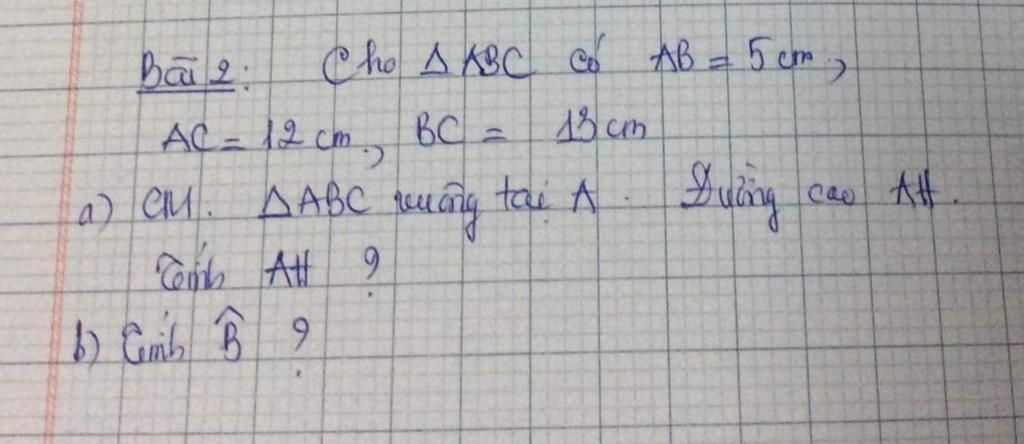 Bài 2: Cho Δ ABC có AB = 5 cm,
AC = 12 cm, BC = 13 cm
a) CM. Δ ABC vuông tại A. Đường cao AH.
Tính AH ?
b) Tính B̂ ?